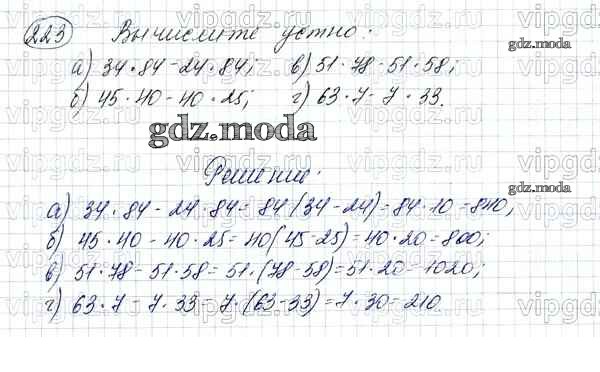 223 Вычислите устно:
а) 34 · 84 - 24 · 84; в) 51 · 78 - 51 · 58;
б) 45 · 40 - 40 · 25; г) 63 · 7 - 7 · 33.
Решение:
а) 34 · 84 - 24 · 84 = 84 (34 - 24) = 84 · 10 = 840;
б) 45 · 40 - 40 · 25 = 40 (45 - 25) = 40 · 20 = 800;
в) 51 · 78 - 51 · 58 = 51 · (78 - 58) = 51 · 20 = 1020;
г) 63 · 7 - 7 · 33 = 7 · (63 - 33) = 7 · 30 = 210.
gdz.moda
gdz.moda
gdz.moda
vipgdz.ru